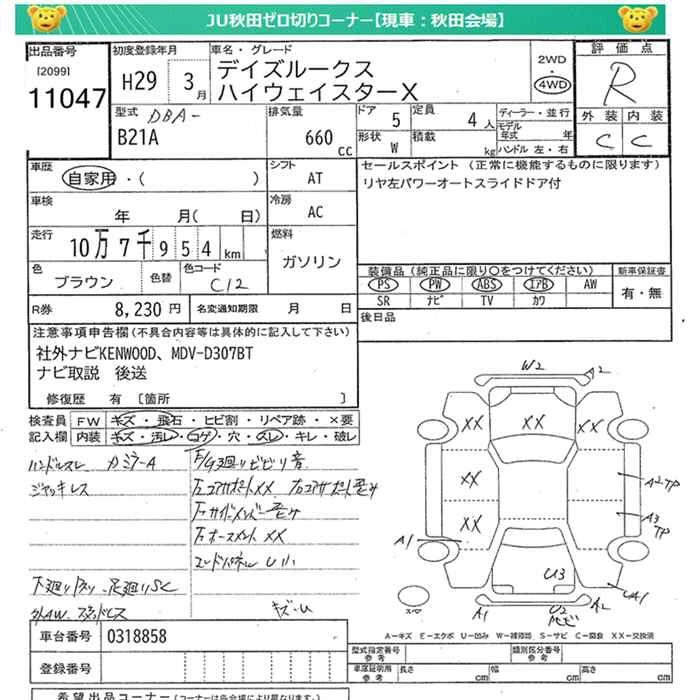 JU秋田ゼロ切りコーナー【現車：秋田会場】
出品番号
[2099]
11047
初度登録年月
H29 3月
車名・グレード
デイズルークス
ハイウェイスターX
2WD
・
4WD
評価点
R
外装 内装
C C
型式 DBA-
B21A
排気量
660 cc
ドア 5
定員 4人
形状 W
積載 kg
ディーラー・並行
モデル年式 年
ハンドル 左・右
車歴
自家用・( )
シフト
AT
車検
年 月( 日)
冷房
AC
走行
10万7千954km
燃料
ガソリン
色
ブラウン
色替
色コード
C12
R券 8,230円
名変通知期限 月 日
セールスポイント (正常に機能するものに限ります)
リヤ左パワーオートスライドドア付
装備品(純正品に限り○をつけてください)
新車保証書
PS PW ABS エアB AW
SR ナビ TV カワ
有・無
後日品
注意事項申告欄(不具合内容等は具体的に記入して下さい)
社外ナビKENWOOD、MDV-D307BT
ナビ取説 後送
修復歴 有 [箇所 ]
検査員記入欄
FW キズ・飛石・ヒビ割・リペア跡・×要
内装 キズ・汚レ・コゲ・穴・スレ・キレ・破レ
ハンドルスレ カミラーA
ジャッキレス
F/G廻りビビリ音
左コアサポートXX
右コアサポート歪み
左サイドメンバー歪み
エンドパネルU小
キズ・U
車台番号 0318858
登録番号
W2
A2
XX
XX
XX
XX
XX
A1
A2 TP
A3 TP
U3
UA1
A1
U2
A2
スペア
A－キズ E－エクボ U－凹み W－補修跡 S－サビ C－腐食 XX－交換済
型式指定番号 参考
類別区分番号 参考
車庫証明用 参考
長さ cm
幅 cm
高さ cm
希望出品コーナー(コーナーは各会場により異なります)